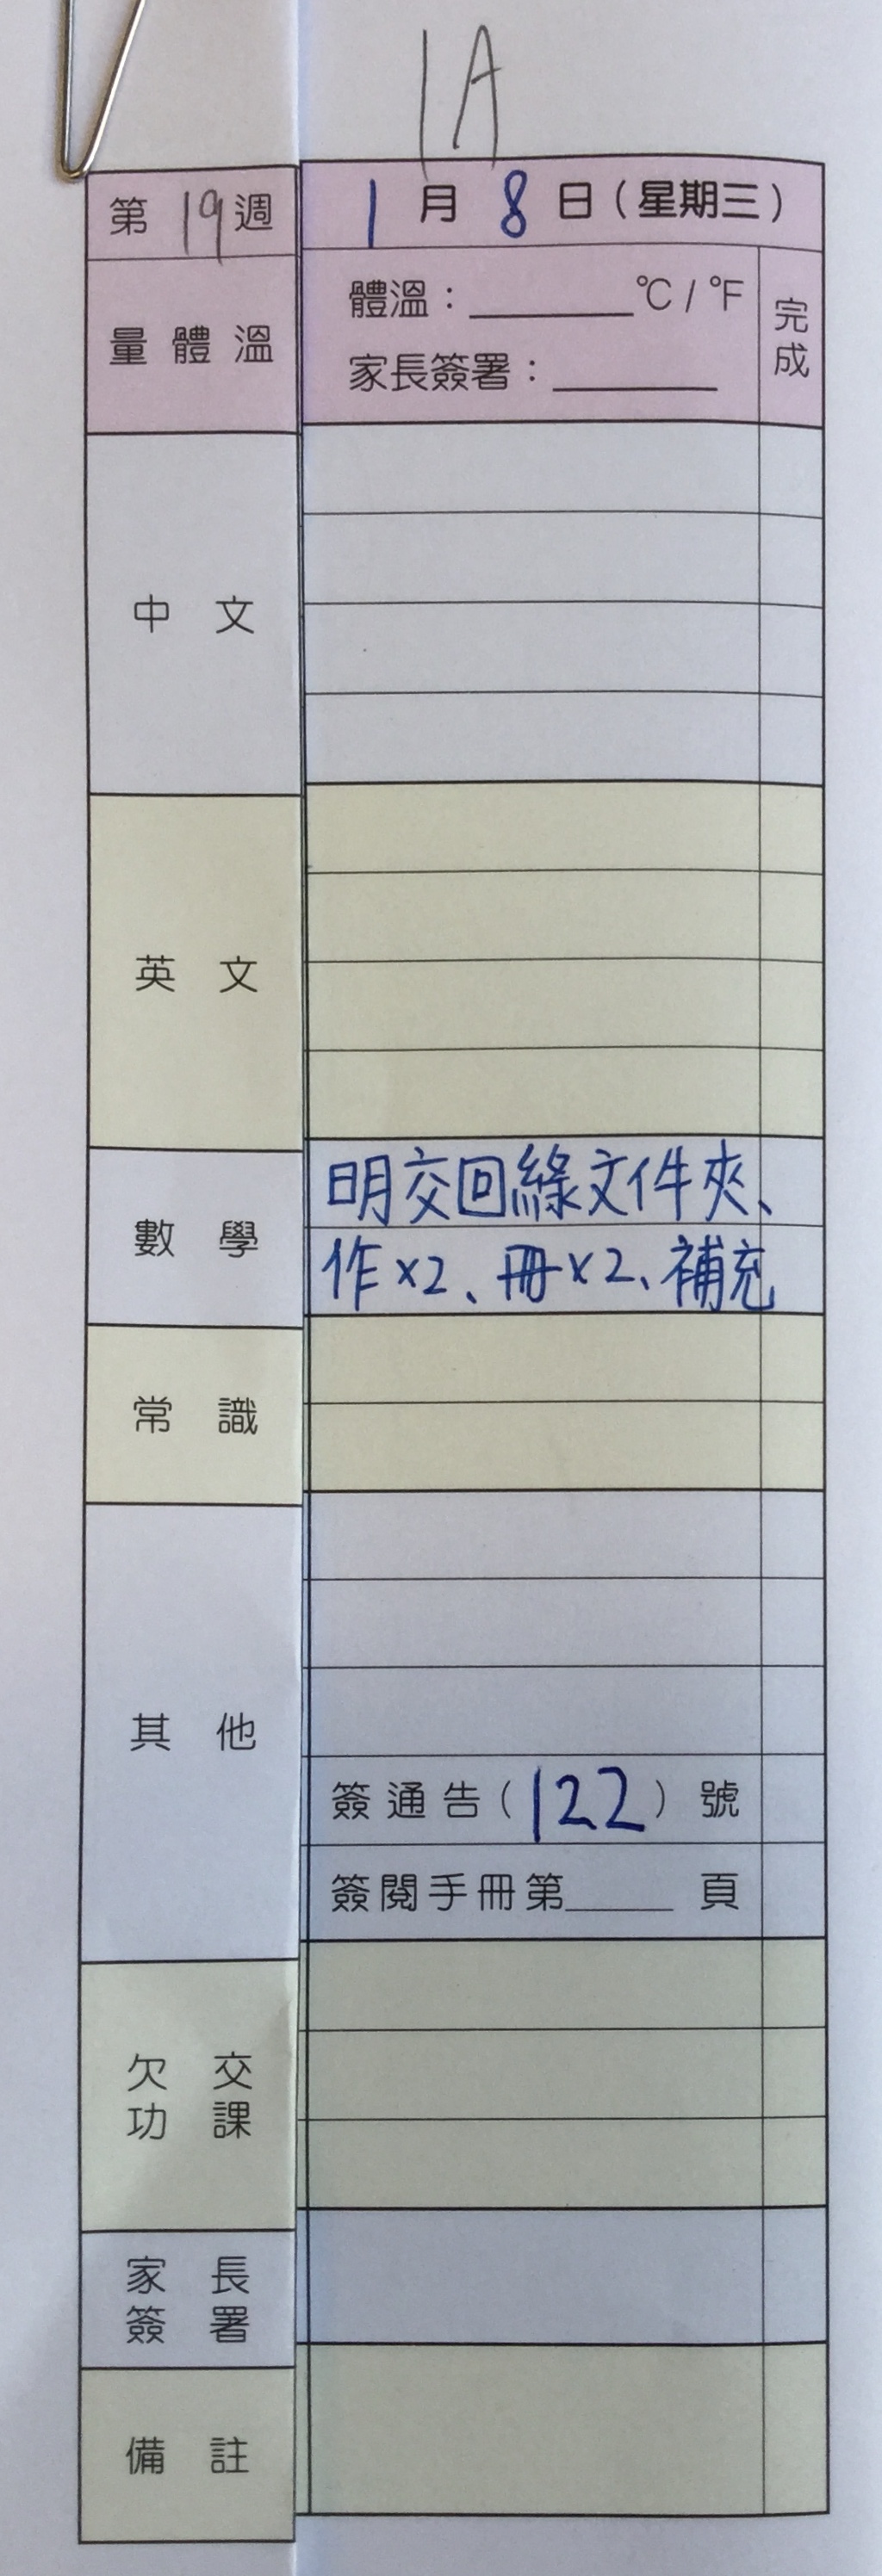 1A
第 19 週
1 月 8 日（星期三）
量 體 溫
體溫：______°C / °F
家長簽署：______
完成
中 文
英 文
數 學
明交回綠文件夾、
作×2、冊×2、補充
常 識
其 他
簽通告（122）號
簽閱手冊第____ 頁
欠 交
功 課
家 長
簽 署
備 註